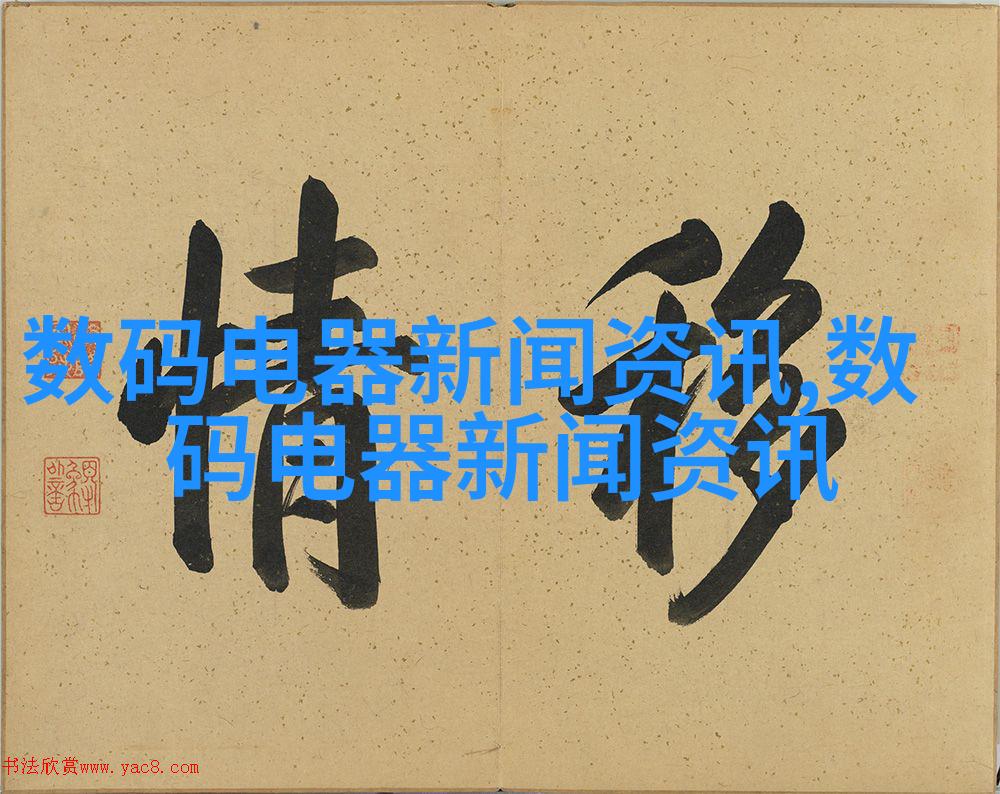 移情
数码电器新闻资讯,数
码电器新闻资讯
书法欣赏www.yac8.com